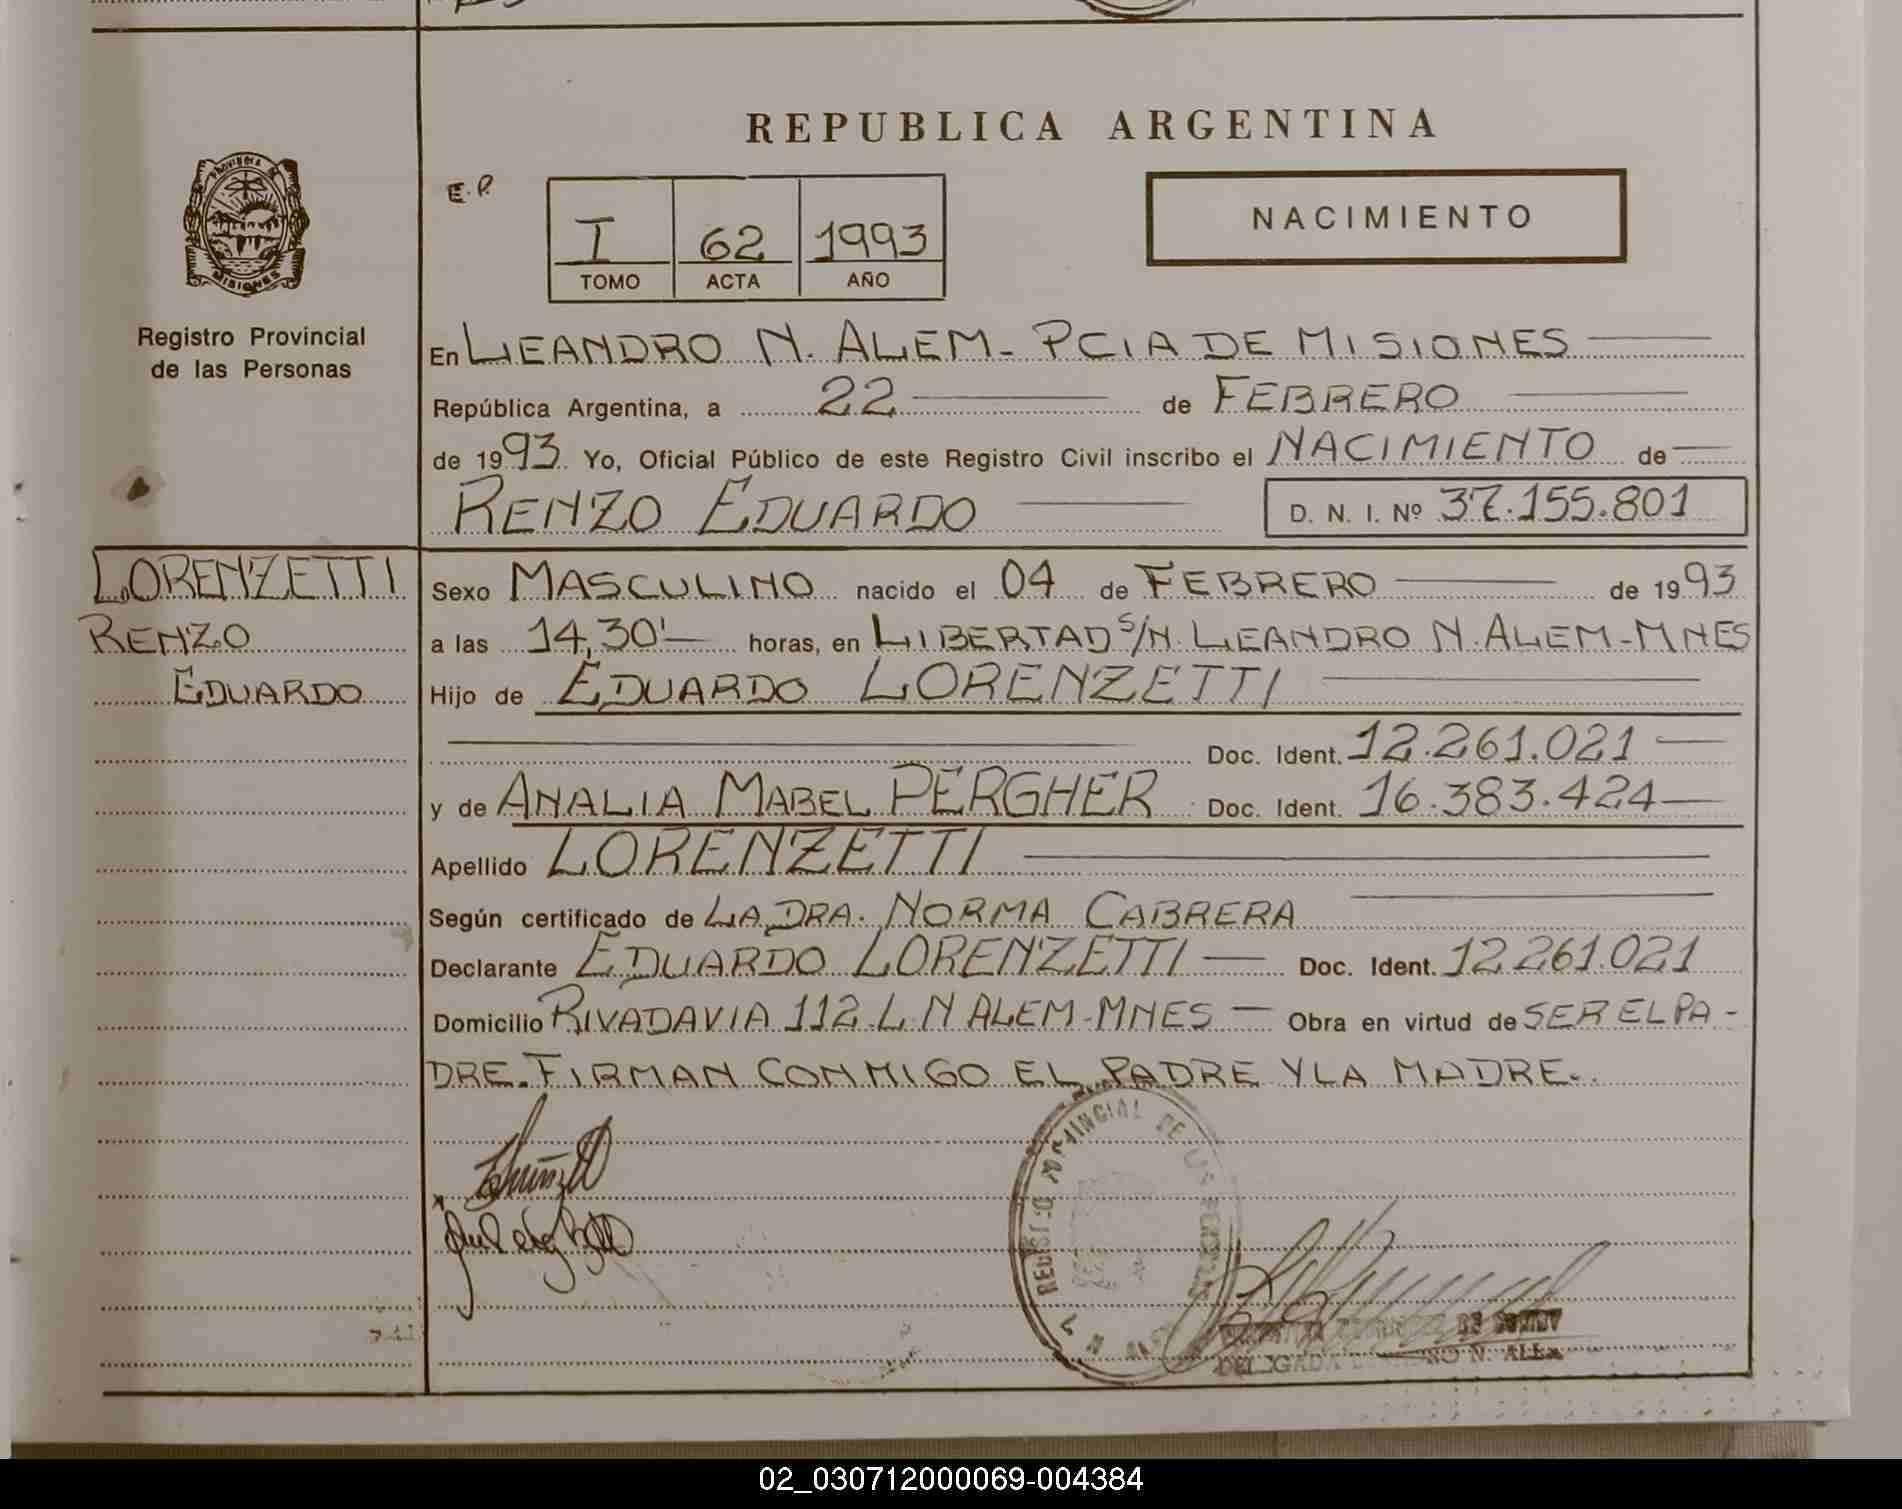 REPUBLICA ARGENTINA
PROVINCIA DE
MISIONES
Registro Provincial
de las Personas
E.P.
I 62 1993
TOMO ACTA AÑO
NACIMIENTO
En LEANDRO N. ALEM - PCIA DE MISIONES
República Argentina, a 22 de FEBRERO
de 1993 Yo, Oficial Público de este Registro Civil inscribo el NACIMIENTO de
RENZO EDUARDO D. N. I. Nº 37.155.801
LORENZETTI
RENZO
EDUARDO
Sexo MASCULINO nacido el 04 de FEBRERO de 1993
a las 14,30' horas, en LIBERTAD S/N. LEANDRO N. ALEM-MNES
Hijo de EDUARDO LORENZETTI
Doc. Ident. 12.261.021
y de ANALIA MABEL PERGHER Doc. Ident. 16.383.424
Apellido LORENZETTI
Según certificado de LA DRA. NORMA CABRERA
Declarante EDUARDO LORENZETTI Doc. Ident. 12.261.021
Domicilio RIVADAVIA 112 L N ALEM-MNES Obra en virtud de SER EL PA-
DRE. FIRMAN CONMIGO EL PADRE Y LA MADRE.
REGISTRO PROVINCIAL DE LAS PERSONAS
DELEGADA N. ALEM
02_030712000069-004384